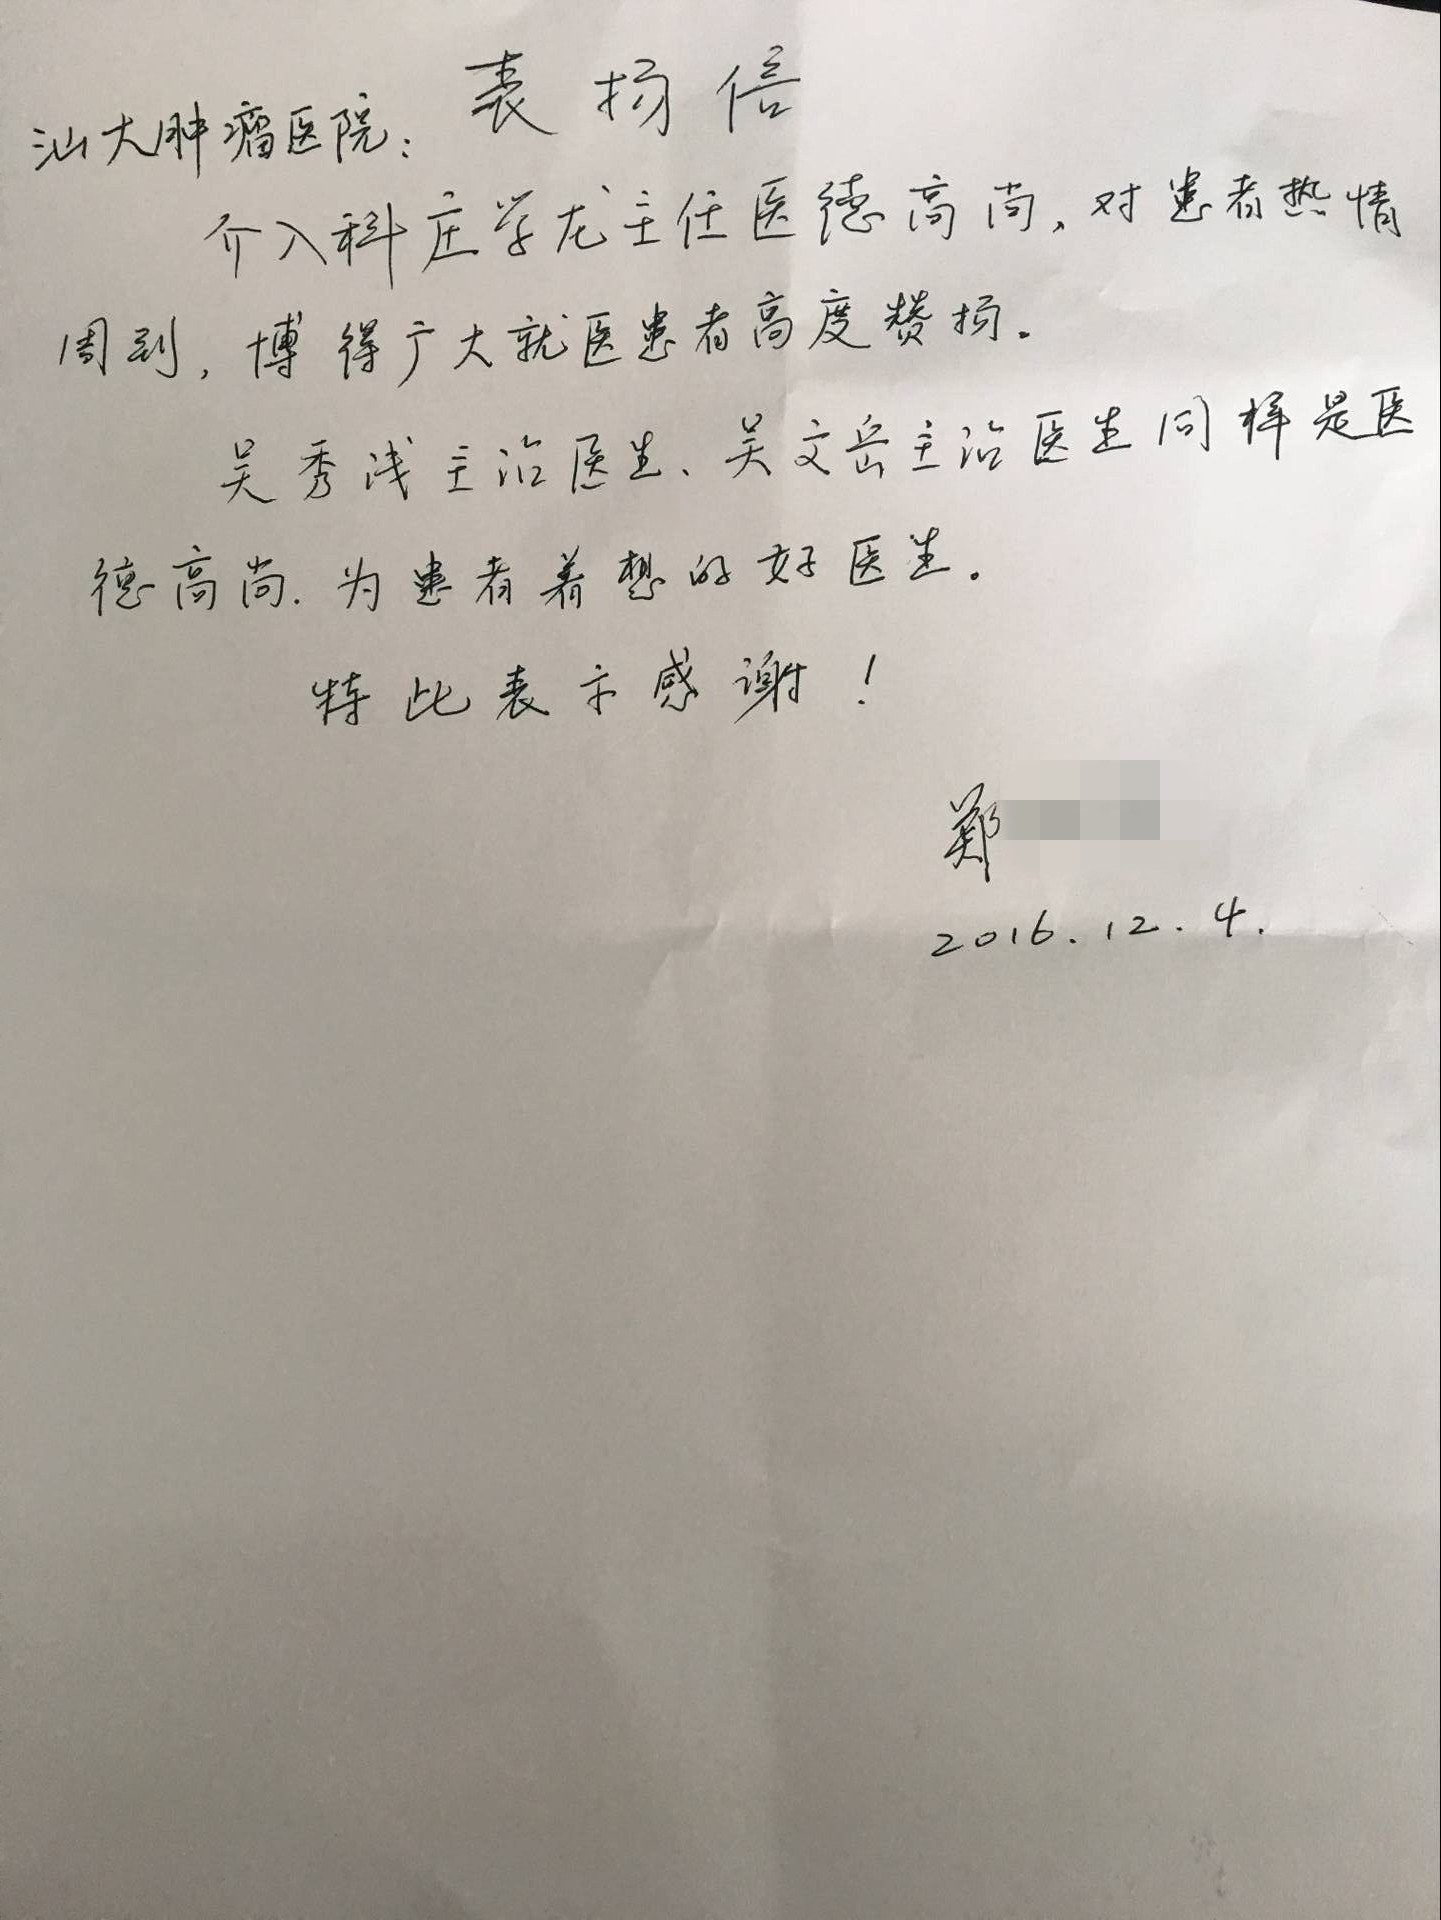 表扬信
汕大肿瘤医院：
介入科庄学龙主任医德高尚，对患者热情
周到，博得广大就医患者高度赞扬。
吴秀浅主治医生、吴文岳主治医生同样是医
德高尚．为患者着想的好医生。
特此表示感谢！
郑
2016.12.4.